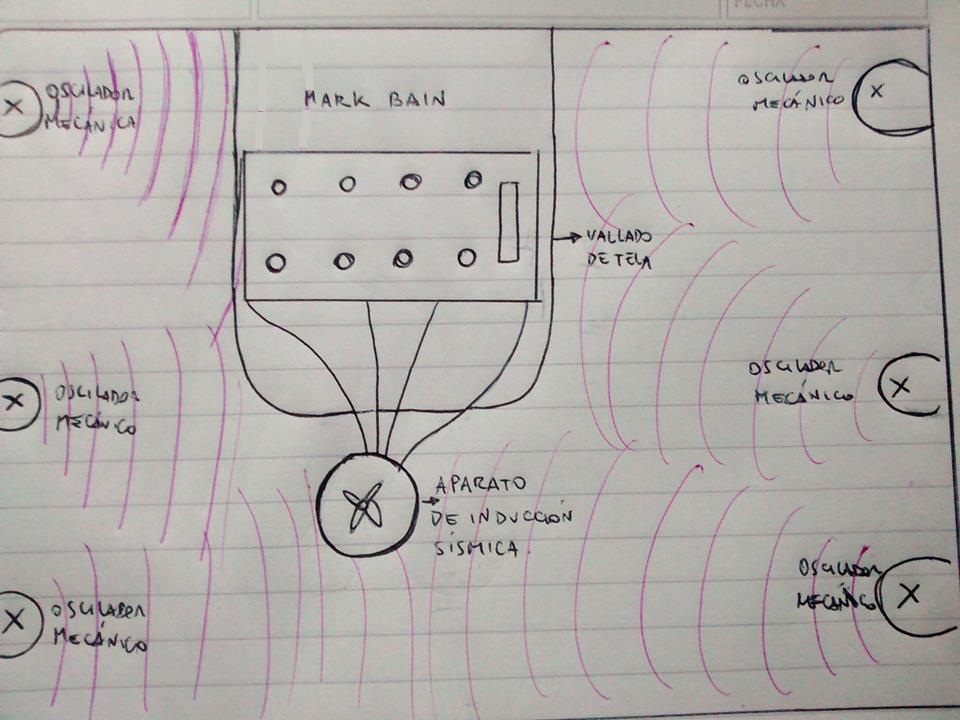 FECHA
MARK BAIN
OSCILADOR
MECÁNICA
OSCILADOR
MECÁNICO
VALLADO
DE TELA
OSCILADOR
MECÁNICO
OSCILADOR
MECÁNICO
APARATO
DE INDUCCIÓN
SÍSMICA.
OSCILADOR
MECÁNICO
OSCILADOR
MECÁNICO